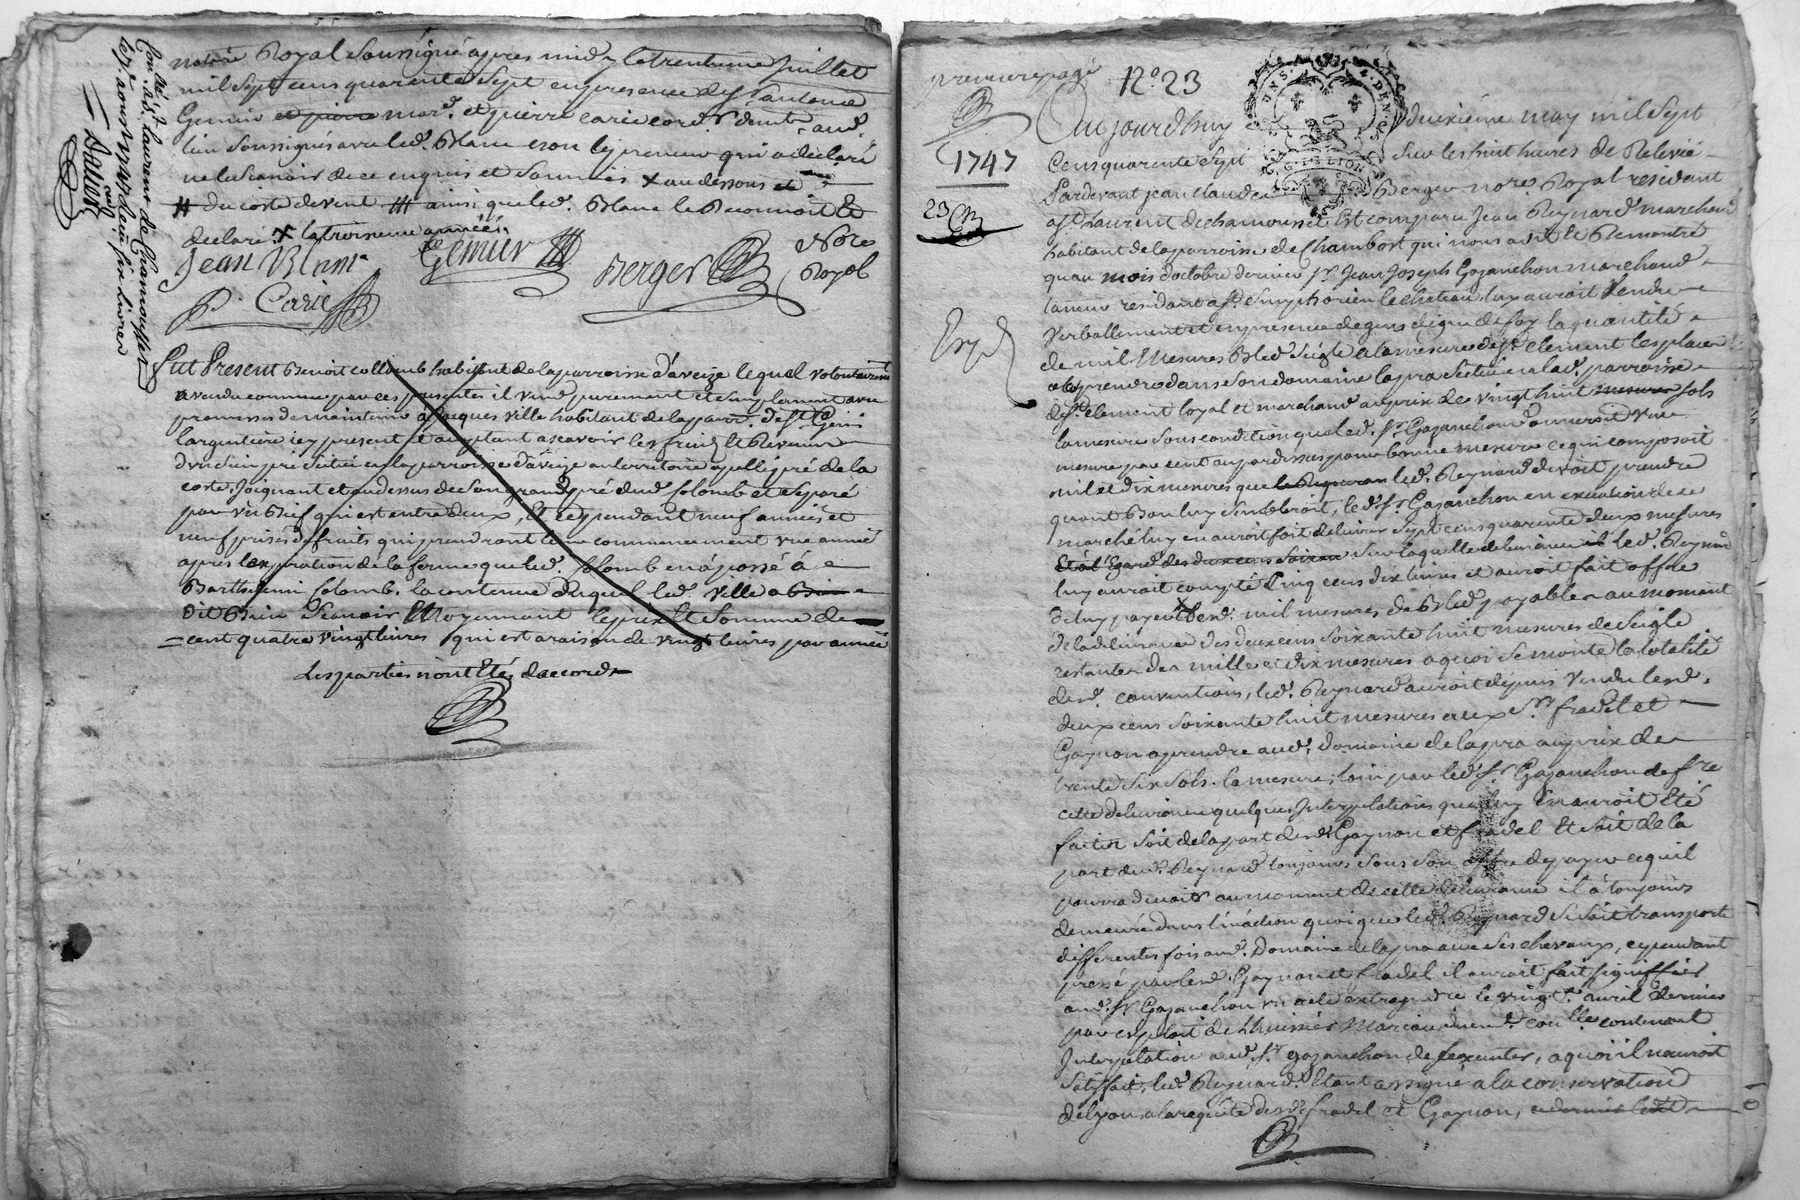 notaire Royal soussigné apres midy le trentieme juillet
mil sept cens quarante sept en presence de sr antoine
Genier et pierre mar.d et pierre carie cord.r demt. aud.
lieu soussignés avec led. Blanc non le preneur qui a declaré
ne le scavoir de ce enquis et sommés x au dessous et
# du costé de vent ainsi que led. Blanc le Reconnoit et
declaré x la troisieme année
Jean Blanc
Genier
P. Carie
Berger
Nore
Royal
Con.lé à St laurent de Chamousset
le 7e aout 1747 Reçu six livres
Fut Present Benoit collomb habitant de la parroisse d'aveize lequel volontairemt
a vendu comme par ces presentes il vend purement et simplement avec
promesses de maintenir a Jacques Ville habitant de la parr. de St Genis
largentiere icy present et acceptant ascavoir les fruits et Revenus
d'un sien pré scitué en la parroisse d'aveize au territoire appellé pré de la
coste, Joignant et au dessus de son grand pré dud. Colomb et separé
par un Bief qui est entre deux, Et ce pendant neuf années et
neuf prises de fruits qui prendront leur commencement une année
apres l'expiration de la ferme que led. Colomb en a passé à
Barthelemi Colomb. la contenue duquel led. Ville a
dit Bien Scavoir Moyennant le prix et Somme de
cent quatre vingt livres qui est a raison de vingt livres par année
Les parties n'ont Eté d'accord
premiere page
No. 23
1747
23
Exp.d
Aujourdhuy deuxiéme may mil sept
Cens quarante Sept sur les huit heures de Relevée
Pardevant jean claude Berger nore Royal residant
a St Laurent de chamousset Est comparu Jean Reynard marchand
habitant de la parroisse de Chambost qui nous a dit et Remontré
quau mois d'octobre dernier Sr. Jean Joseph Gojanchon marchand
taneur residant a St Simphorien le chateau luy auroit Vendu
verballement et en presence de gens digne de foy la quantité
de mil Mesures Bled Seigle a la mesure de St clement les places
a les prendre dans son domaine lapra scitué en lad. parroisse
de St clement loyal et marchand au prix de vingt huit mesures sols
la mesure sous condition que led. Sr Gojanchon donneroit une
mesure par cent au par dessus pour bonne mesure ce qui composoit
mil et dix mesures que led. Reynard devoit prendre
quant Bon luy sembleroit, led. Sr. Gojanchon en execution de ce
marché luy en auroit fait delivrer Sept cens quarante deux mesures
Et a l'Egard des deux cens soixante sur laquelle delivrance led. Reynard
luy auroit compté Cinq cens dix livres et auroit fait offre
de luy payer lesd. mil mesures de Bled payables au moment
de la delivrance des deux cens soixante huit mesures de seigle
restantes des mille et dix mesures a quoi se monte la totalité
desd. conventions, led. Reynard auroit depuis Vendu lesd.
deux cens soixante huit mesures aux Srs. fradel et
Gagnon a prendre aud. domaine de lapra au prix de
trente six sols la mesure, loin par led. Sr Gojanchon de fre
cette delivrance quelques Interpelations qui luy En auroit Eté
faites soit de la part desd. Gagnon et fradel Et soit de la
part dud. Reynard toujours sous son offre de payer ce quil
pourra devoir au moment de cette delivrance il a toujours
demeuré dans l'inaction quoique led. Reynard se soit transporté
differentes fois aud. Domaine de lapra avec ses chevaux, cependant
pressé par lesd. Gagnon et fradel il auroit fait signiffier
aud. Sr Gojanchon un acte extrajud.re le vingt avril dernier
par exploit de Lhuissier contenant
Interpelation aud. Sr. gojanchon de sexecuter, a quoi il nauroit
satisfait, led. Reynard Etant assigné a la conservation
de lyon a la requête desd. fradel et Gagnon,